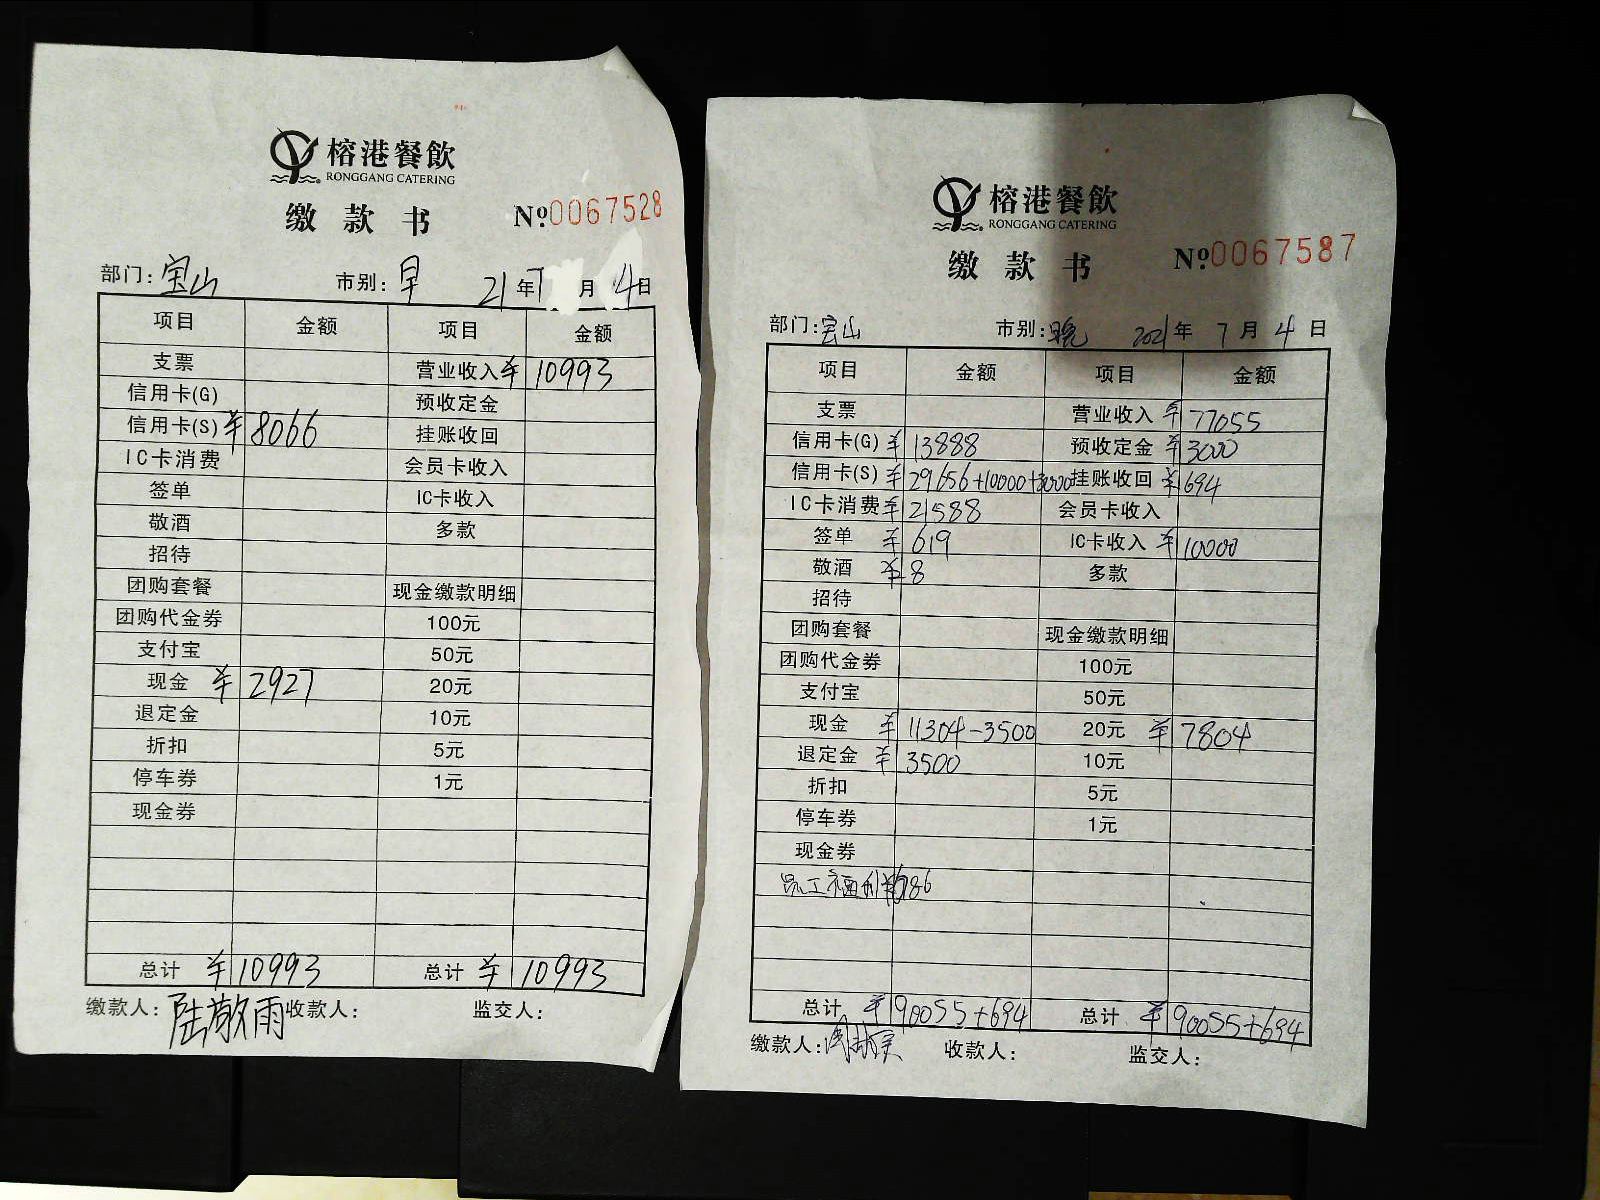 榕港餐飲
RONGGANG CATERING
缴款书 Nº:0067528
部门: 宝山 市别: 早 21年7月4日
项目 金额 项目 金额
支票 营业收入 ¥10993
信用卡(G) 预收定金
信用卡(S) ¥8066 挂账收回
IC卡消费 会员卡收入
签单 IC卡收入
敬酒 多款
招待
团购套餐 现金缴款明细
团购代金券 100元
支付宝 50元
现金 ¥2927 20元
退定金 10元
折扣 5元
停车券 1元
现金券
总计 ¥10993 总计 ¥10993
缴款人: 陆敬雨 收款人: 监交人:
榕港餐飲
RONGGANG CATERING
缴款书 Nº:0067587
部门: 宝山 市别: 晚 2021年7月4日
项目 金额 项目 金额
支票 营业收入 ¥77055
信用卡(G) ¥13888 预收定金 ¥3000
信用卡(S) ¥29656+10000+3000 挂账收回 ¥694
IC卡消费 ¥21588 会员卡收入
签单 ¥619 IC卡收入 ¥10000
敬酒 ¥8 多款
招待
团购套餐 现金缴款明细
团购代金券 100元
支付宝 50元
现金 ¥11304-3500 20元 ¥7804
退定金 ¥3500 10元
折扣 5元
停车券 1元
现金券
员工福利 ¥686
总计 ¥90055+694 总计 ¥90055+694
缴款人: 收款人: 监交人: